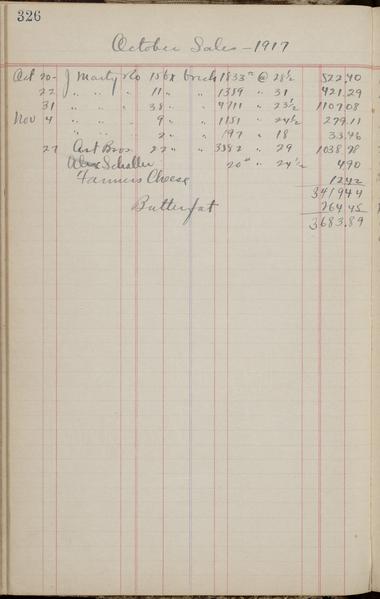 326
October Sales - 1917
Oct 20 - J Marty & Co 15 bx brick 1833 # @ 28 1/2 522.40
22 " " " 11 " " 1359 " 31 421.29
31 " " " 38 " " 4711 " 23 1/2 1107.08
Nov 4 " " " 9 " " 1151 " 24 1/2 279.11
" " " 2 " " 197 " 18 35.46
27 Art Bros 22 " " 3582 " 29 1038.78
Alex Schaller 20 # " 24 1/2 4.90
Farmers Cheese 12.42
3419.44
Butterfat 264.45
3683.89